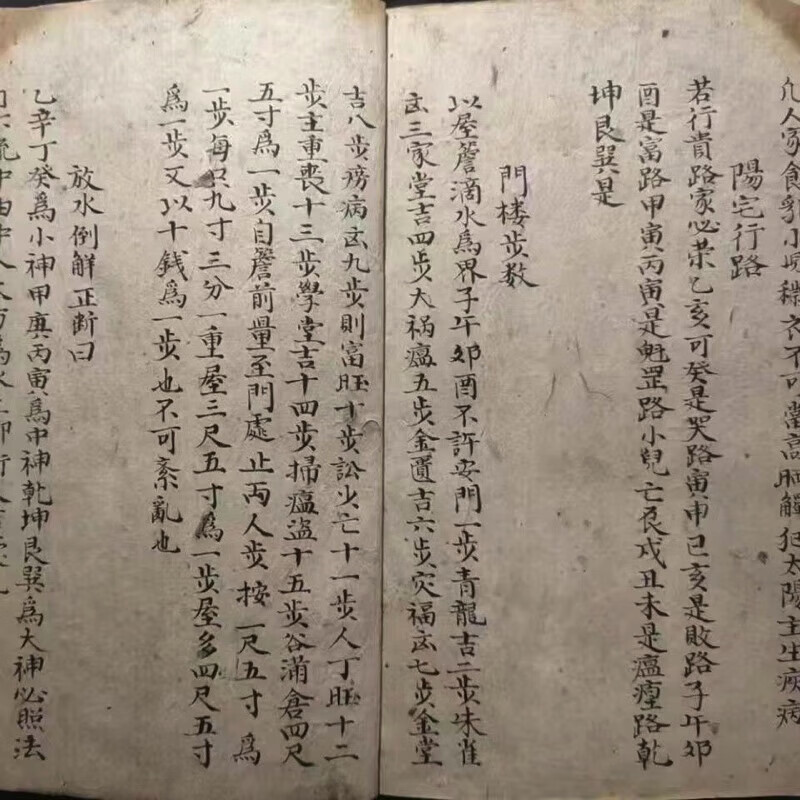 凡人家食乳小兒穢衣不可當高晒觸犯太陽主生疾病
陽宅行路
若行貴路家必荣乙亥可癸是哭路寅申巳亥是敗路子午卯
酉是富路甲寅丙寅是魁罡路小兒亡辰戍丑未是瘟瘽路乾
坤艮巽是
門楼步数
以屋簷滴水爲界子午卯酉不許安門一步青龍吉二步朱雀
凶三家堂吉四步大祸瘟五步金匱吉六步灾福凶七步金堂
吉八步痨病凶九步則富旺十步訟少亡十一步人丁旺十二
步主重喪十三步學堂吉十四步掃瘟盜十五步谷滿倉四尺
五寸爲一步自簷前量至門處止丙人步按一尺五寸爲
一步每只九寸三分一重屋三尺五寸爲一步屋多四尺五寸
爲一步又以十錢爲一步也不可紊亂也
放水倒解正断曰
乙辛丁癸爲小神甲庚丙寅爲中神乾坤艮巽爲大神必照法